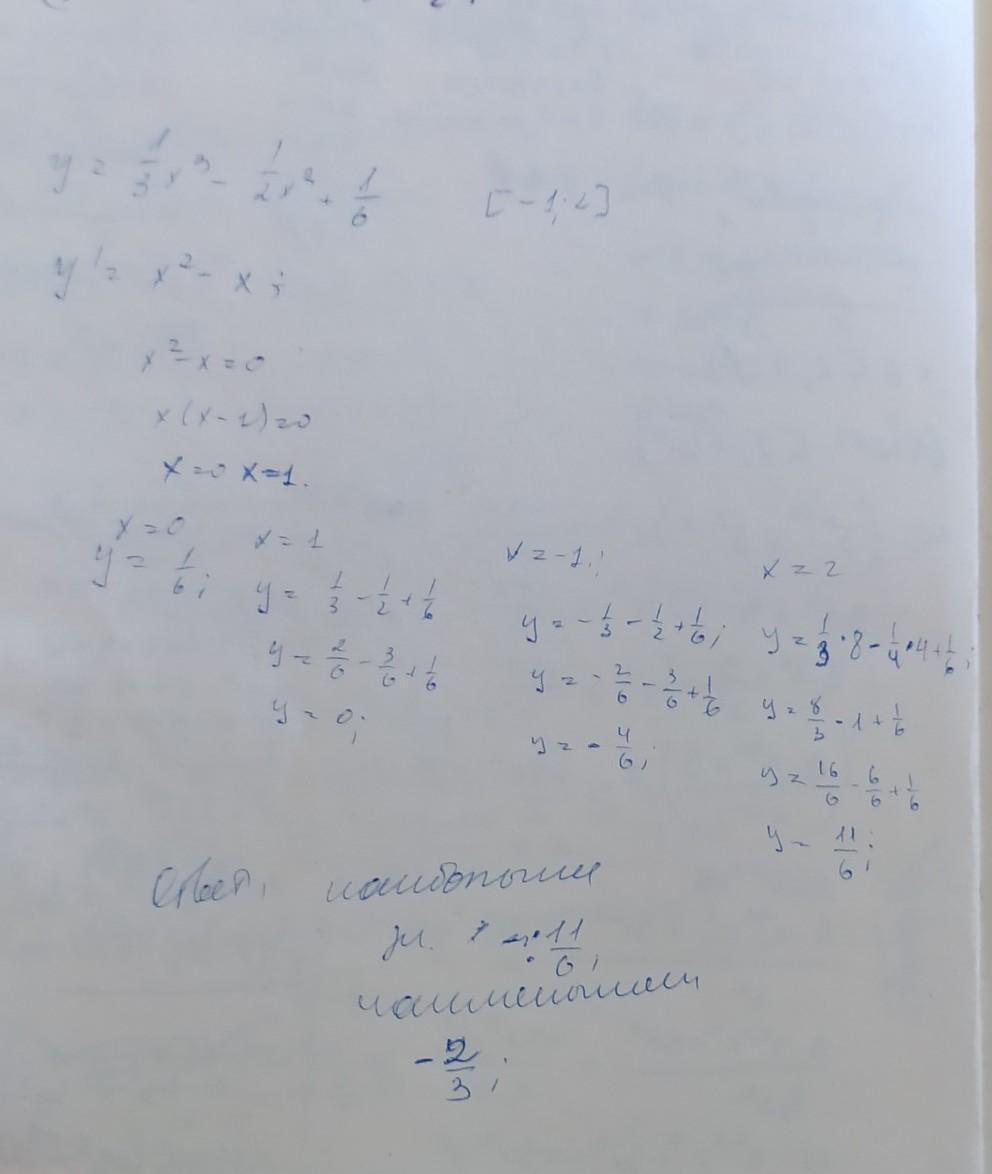 y = 1/3 x³ - 1/2 x² + 1/6 [-1; 2]
y' = x² - x;
x² - x = 0
x(x-1)=0
x=0 x=1.
x=0
y = 1/6;
x = 1
y = 1/3 - 1/2 + 1/6
y = 2/6 - 3/6 + 1/6
y = 0;
x = -1;
y = -1/3 - 1/2 + 1/6;
y = -2/6 - 3/6 + 1/6
y = -4/6;
x = 2
y = 1/3·8 - 1/4·4 + 1/6;
y = 8/3 - 1 + 1/6
y = 16/6 - 6/6 + 1/6
y = 11/6;
Ответ: наибольшее
зн. 11/6;
наименьшее
-2/3;